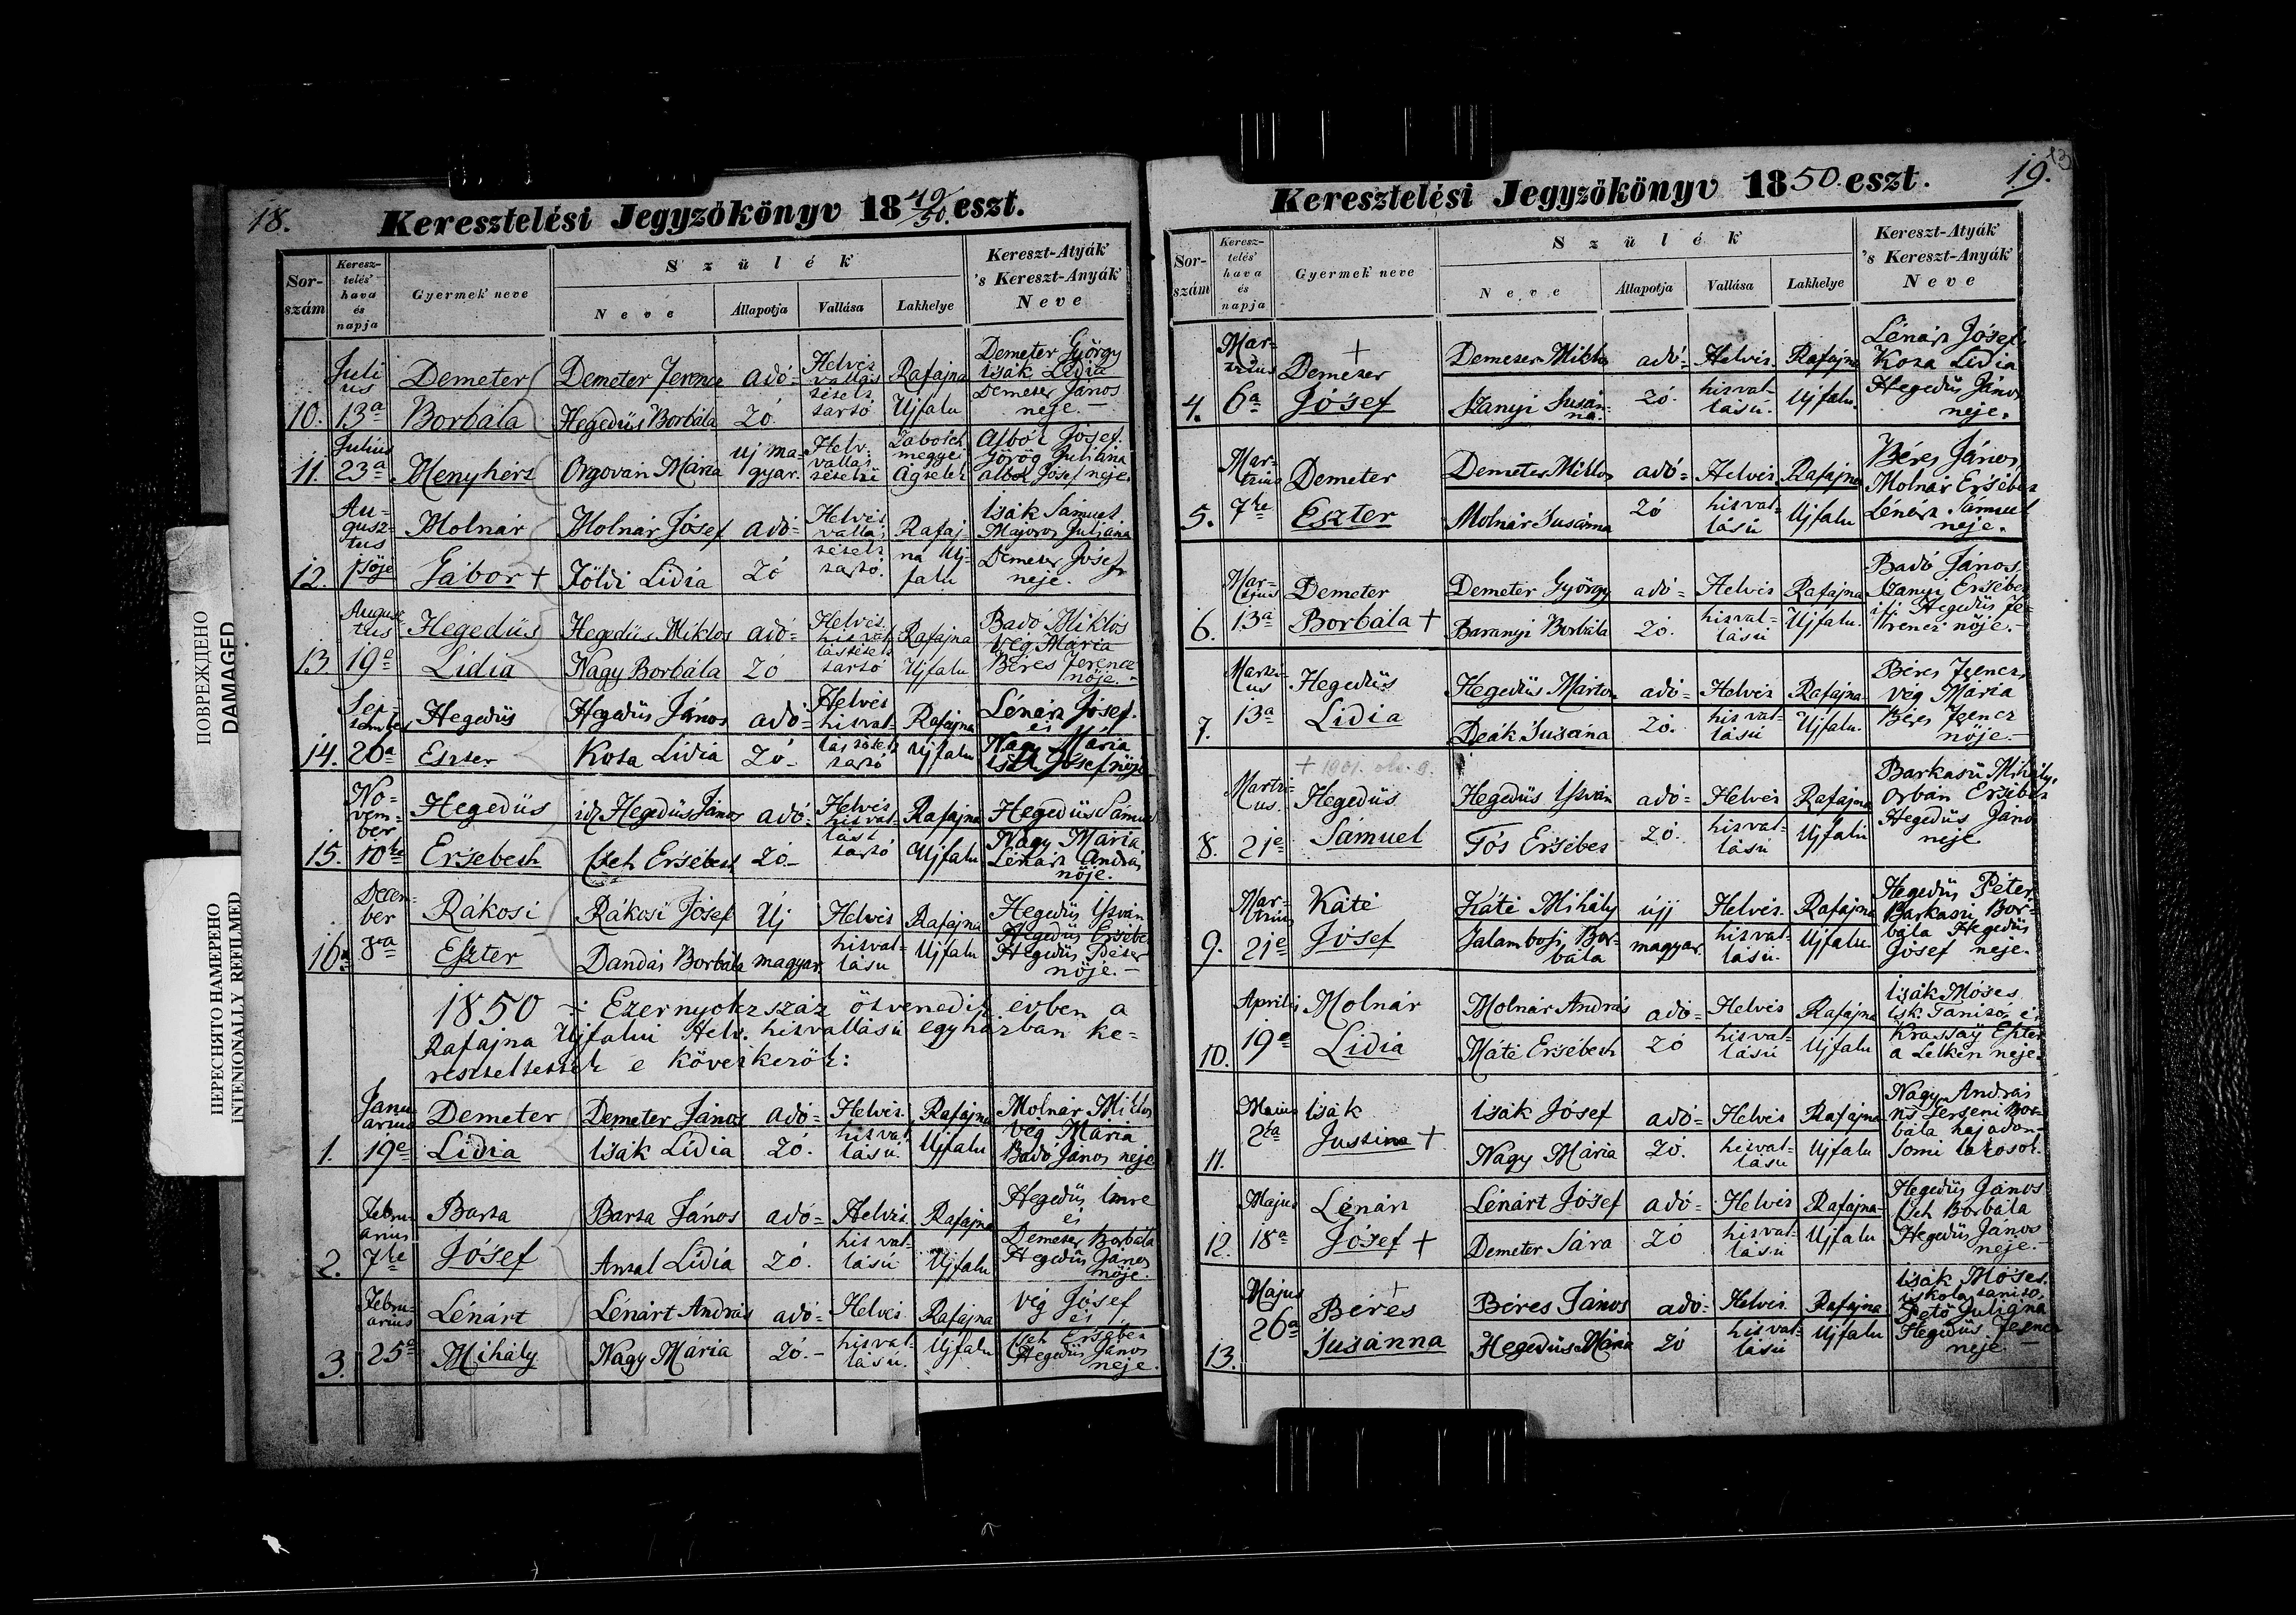 18.
Keresztelési Jegyzőkönyv 18 49/50. eszt.
Sor-
szám
Keresz-
telés'
hava
és
napja
Gyermek' neve
Szülék
Neve
Állapotja
Vallása
Lakhelye
Kereszt-Atyák'
's Kereszt-Anyák'
Neve
10.
Juli
us
13a
Demeter
Borbála
Demeter Ferencz
Hegedüs Borbála
adó=
zó.
Helvét
vallás
tételt
tartó
Rafajna
Ujfalu
Demeter György
Isák Lidia
Demeter János
neje.-
11.
Julius
23a
Menyhért
Orgován Mária
Uj ma-
gyar.
Helv:
vallás
tételü
megyei
Albók Josef.
Görög Juliána
Albók Josef neje.
12.
Au=
gusz=
tus
1söje
Molnár
Gábor +
Molnár Jósef
Földi Lidia
adó=
zó
Helvét
vallás
tételt
tartó.
Rafaj-
na Uj-
falu
Isák Sámuel
Májoros Juliána
Demeter Jósef
neje.
13.
August
tus
19e
Hegedüs
Lidia
Hegedüs Miklos
Nagy Borbála
adó=
zó
Helvét.
hitval
lástételt
tartó
Rafajna
Ujfalu
Badó Miklós
Vég Mária
Béres Ferencz
nöje.-
14.
Sep-
tember
26a
Hegedüs
Eszter
Hegedüs János
Kosa Lidia
adó=
zó-
Helvét
hitval-
lástételt
tartó
Rafajna
Ujfalu
Lénárt Jósef.
és
Nagy Mária
Jósef nöje
15.
No=
vem=
ber
10ke
Hegedüs
Ersebeth
id. Hegedüs János
Cseh Ersébeth
adó=
zó-
Helvét
hitval-
lást
tartó
Rafajna
Ujfalu
Hegedüs Sámuel
Nagy Mária
Lénárt András
nöje.
16.
Decem-
ber
8a
Rákosi
Eszter
Rákosi Jósef
Dandás Borbála
Uj
magyar
Helvét
hitval-
lásu
Rafajna
Ujfalu
Hegedüs István
Hegedüs Ersébet
Hegedüs Péter
nöje.-
1850 ÷ Ezernyolczszáz ötvenedik évben a
Rafajna Ujfalui Helv. hitvallásu egyházban ke-
reszteltettek e következök:
1.
Janu
arius
19e
Demeter
Lidia
Demeter János
Isák Lidia
adó=
zó.
Helvét.
hitval
lásu.
Rafajna
Ujfalu
Molnár Miklos
Vég Mária
Badó János neje
2.
Febru
arius
7te
Barta
Jósef
Barta János
Antal Lidia
adó=
zó.
Helvét.
hitval-
lásu
Rafajna
Ujfalu
Hegedüs Imre
és
Demeter Borbála
Hegedüs János
nöje.
3.
Febru-
arius
25a
Lénárt
Mihály
Lénárt András
Nagy Mária
adó-
zó.-
Helvét
hitval-
lásu.
Rafajna
Ujfalu
Vég Jósef
és
Cseh Ersébet
Hegedüs János
neje.
19.
13
Keresztelési Jegyzőkönyv 18 50. eszt.
Sor-
szám
Keresz-
telés'
hava
és
napja
Gyermek neve
Szülék
Neve
Állapotja
Vallása
Lakhelye
Kereszt-Atyák'
's Kereszt-Anyák'
Neve
4.
Mar-
tzius
6a
+
Demeter
Jósef
Demeter Miklos
Szanyi Susán-
na.
adó=
zó.
Helvét.
hitval-
lásu.
Rafajna
Ujfalu.
Lénárt Jósef,
Kosa Lidia
Hegedüs János
neje.
5.
Mar-
tzius
7ke
Demeter
Eszter
Demeter Miklos
Molnár Susánna
adó=
zó
Helvét.
hitval-
lásu
Rafajna
Ujfalu
Béres János,
Molnár Ersébet
Lénárt Sámuel
neje.
6.
Mar=
tzius
13a
Demeter
Borbála +
Demeter György
Baranyi Borbála
adó=
zó.
Helvét
hitval-
lásu
Rafajna
Ujfalu.
Badó János
Szanyi Ersébet
ifj. Hegedüs Fe-
rencz nöje.-
7.
Martzi-
us
13a
Hegedüs
Lidia
Hegedüs Márton
Deák Susána
adó=
zó.
Helvét
hitval-
lásu
Rafajna
Ujfalu.
Béres Ferencz,
Vég Mária
Béres Ferencz
nöje.-
8.
Martzi-
us.
21e
+ 1901. okt. 9.
Hegedüs
Sámuel
Hegedüs István
Tós Ersébet
adó=
zó.
Helvét
hitval-
lásu
Rafajna
Ujfalu
Barkaszi Mihály,
Orbán Ersébet
Hegedüs János
neje
9.
Mar-
tzius
21e
Káté
Jósef
Káté Mihály
Galambosi Bor-
bála
újj
magyar.
Helvét.
hitval-
lásu.
Rafajna
Ujfalu
Hegedüs Péter
Barkaszi Bor-
bála Hegedüs
Jósef neje.
10.
Aprilis
19e
Molnár
Lidia
Molnár András
Máté Ersébeth
adó=
zó
Helvét
hitval-
lásu
Rafajna
Ujfalu
Isák Móses
isk. Tanitó, és
Krassay Eszter
a Lelkész neje.
11.
Maius
2ka
Isák
Justina +
Isák Jósef
Nagy Mária
adó=
zó.
Helvét
hitval-
lásu
Rafajna
Ujfalu
Nagy András
bála hajadon-
lakosok.
12.
Majus
18a
Lénárt
Jósef +
Lénárt Jósef
Demeter Sára
adó=
zó
Helvét
hitval-
lásu
Rafajna-
Ujfalu
Hegedüs János
Cseh Borbála
Hegedüs János
neje.-
13.
Majus
26a
+
Béres
Susánna
Béres János
Hegedüs Mária
adó-
zó
Helvét.
hitval-
lásu
Rafajna
Ujfalu
Isák Móses.
iskola tanitó,
Pető Juliána
Hegedüs Ferencz
neje.
ПОВРЕЖДЕНО
DAMAGED
ПЕРЕСНЯТО НАМЕРЕНО
INTENIONALLY REFILMED